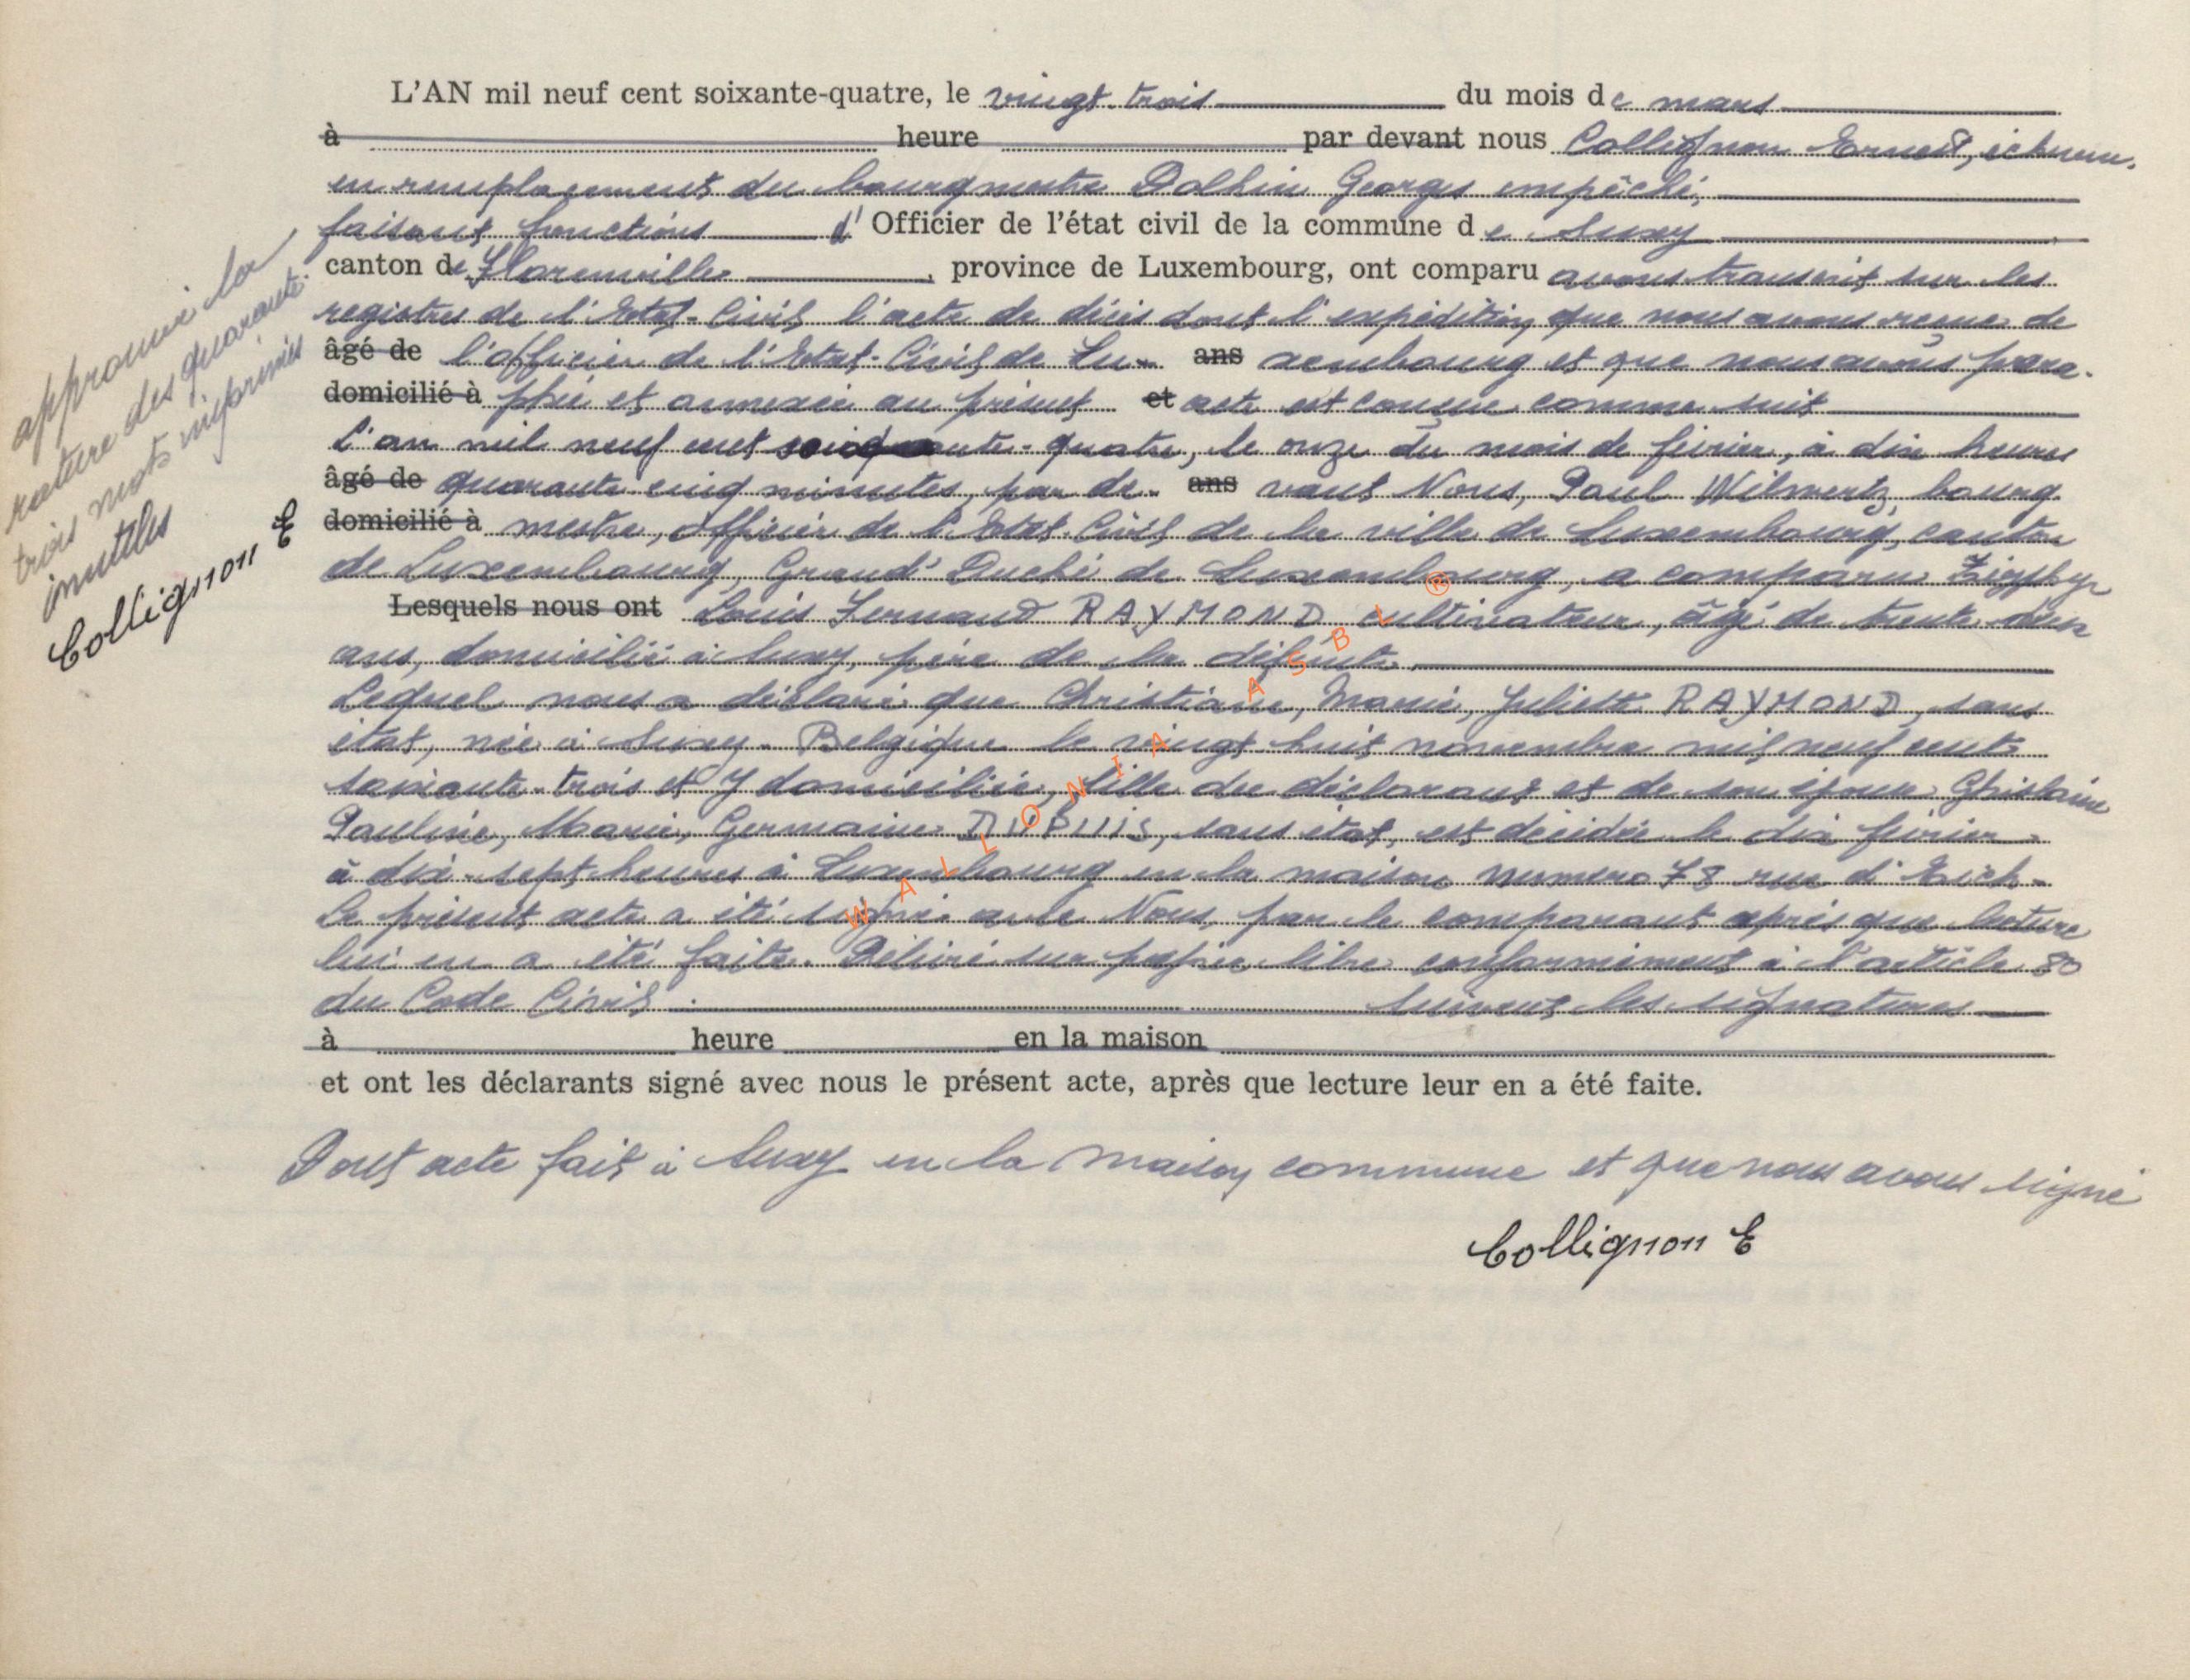 L'AN mil neuf cent soixante-quatre, le vingt-trois du mois de mars
à heure par devant nous Collignon Ernest, échevin,
en remplacement du bourgmestre Dolhin Georges empêché,
faisant fonctions d' Officier de l'état civil de la commune de Suxy
canton de Florenville, province de Luxembourg, ont comparu avons transcrit sur les
registres de l'Etat-Civil l'acte de décès dont l'expédition que nous avons reçue de
âgé de l'officier de l'Etat-Civil de Lu- ans xembourg et que nous avons para-
domicilié à phée et annexée au présent et acte est conçue comme suit
L'an mil neuf cent soixante-quatre, le onze du mois de février, à dix heures
âgé de quarante cinq minutes, par de- ans vant Nous, Paul Wilwertz, bourg
domicilié à mestre, officier de l'Etat-Civil de la ville de Luxembourg, canton
de Luxembourg, Grand' Duché de Luxembourg, a comparu
Lesquels nous ont Louis Fernand RAYMOND cultivateur, âgé de trente deux
ans, domicilié à Suxy, père de la défunte.
Lequel nous a déclaré que Christiane, Marie, Juliette RAYMOND, sans
état, née à Suxy-Belgique le vingt huit novembre mil neuf cent
soixante-trois et y domiciliée, fille du déclarant et de son épouse Ghislaine
Pauline, Marie, Germaine DUPUIS, sans état, est décédée le dix février
à dix-sept heures à Luxembourg en la maison numéro 78 rue d'Eich-
Le présent acte a été signé avec Nous par le comparant après que lecture
lui en a été faite. Délivré sur papier libre conformément à l'article 80
du Code Civil. suivent les signatures
à heure en la maison
et ont les déclarants signé avec nous le présent acte, après que lecture leur en a été faite.
Dont acte fait à Suxy en la maison commune et que nous avons signé
Collignon E
approuvé la
rature des quarante-
trois mots imprimés
inutiles
Collignon E
WALLONIA ASBL ®